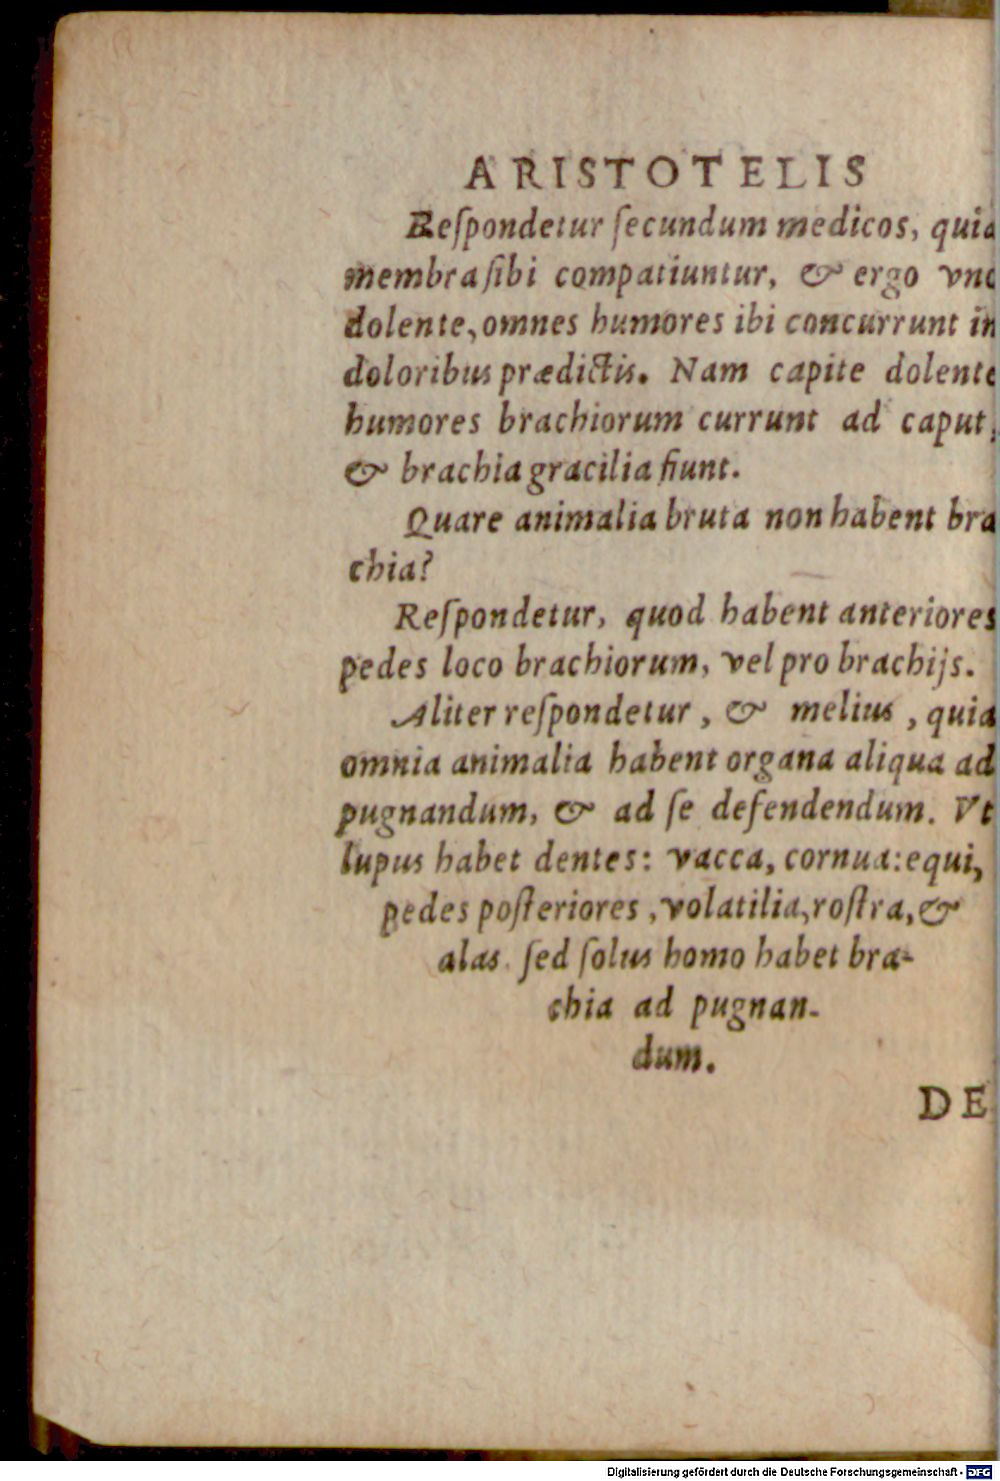 ARISTOTELIS
Reſpondetur ſecundum medicos, quia
membra ſibi compatiuntur, & ergo vno
dolente, omnes humores ibi concurrunt in
doloribus prædictis. Nam capite dolente
humores brachiorum currunt ad caput,
& brachia gracilia fiunt.
Quare animalia bruta non habent bra
chia?
Reſpondetur, quod habent anteriores
pedes loco brachiorum, vel pro brachijs.
Aliter reſpondetur, & melius, quia
omnia animalia habent organa aliqua ad
pugnandum, & ad ſe defendendum. Vt
lupus habet dentes: vacca, cornua: equi,
pedes poſteriores, volatilia, roſtra, &
alas. ſed ſolus homo habet bra-
chia ad pugnan-
dum.
DE
Digitalisierung gefördert durch die Deutsche Forschungsgemeinschaft - DFG